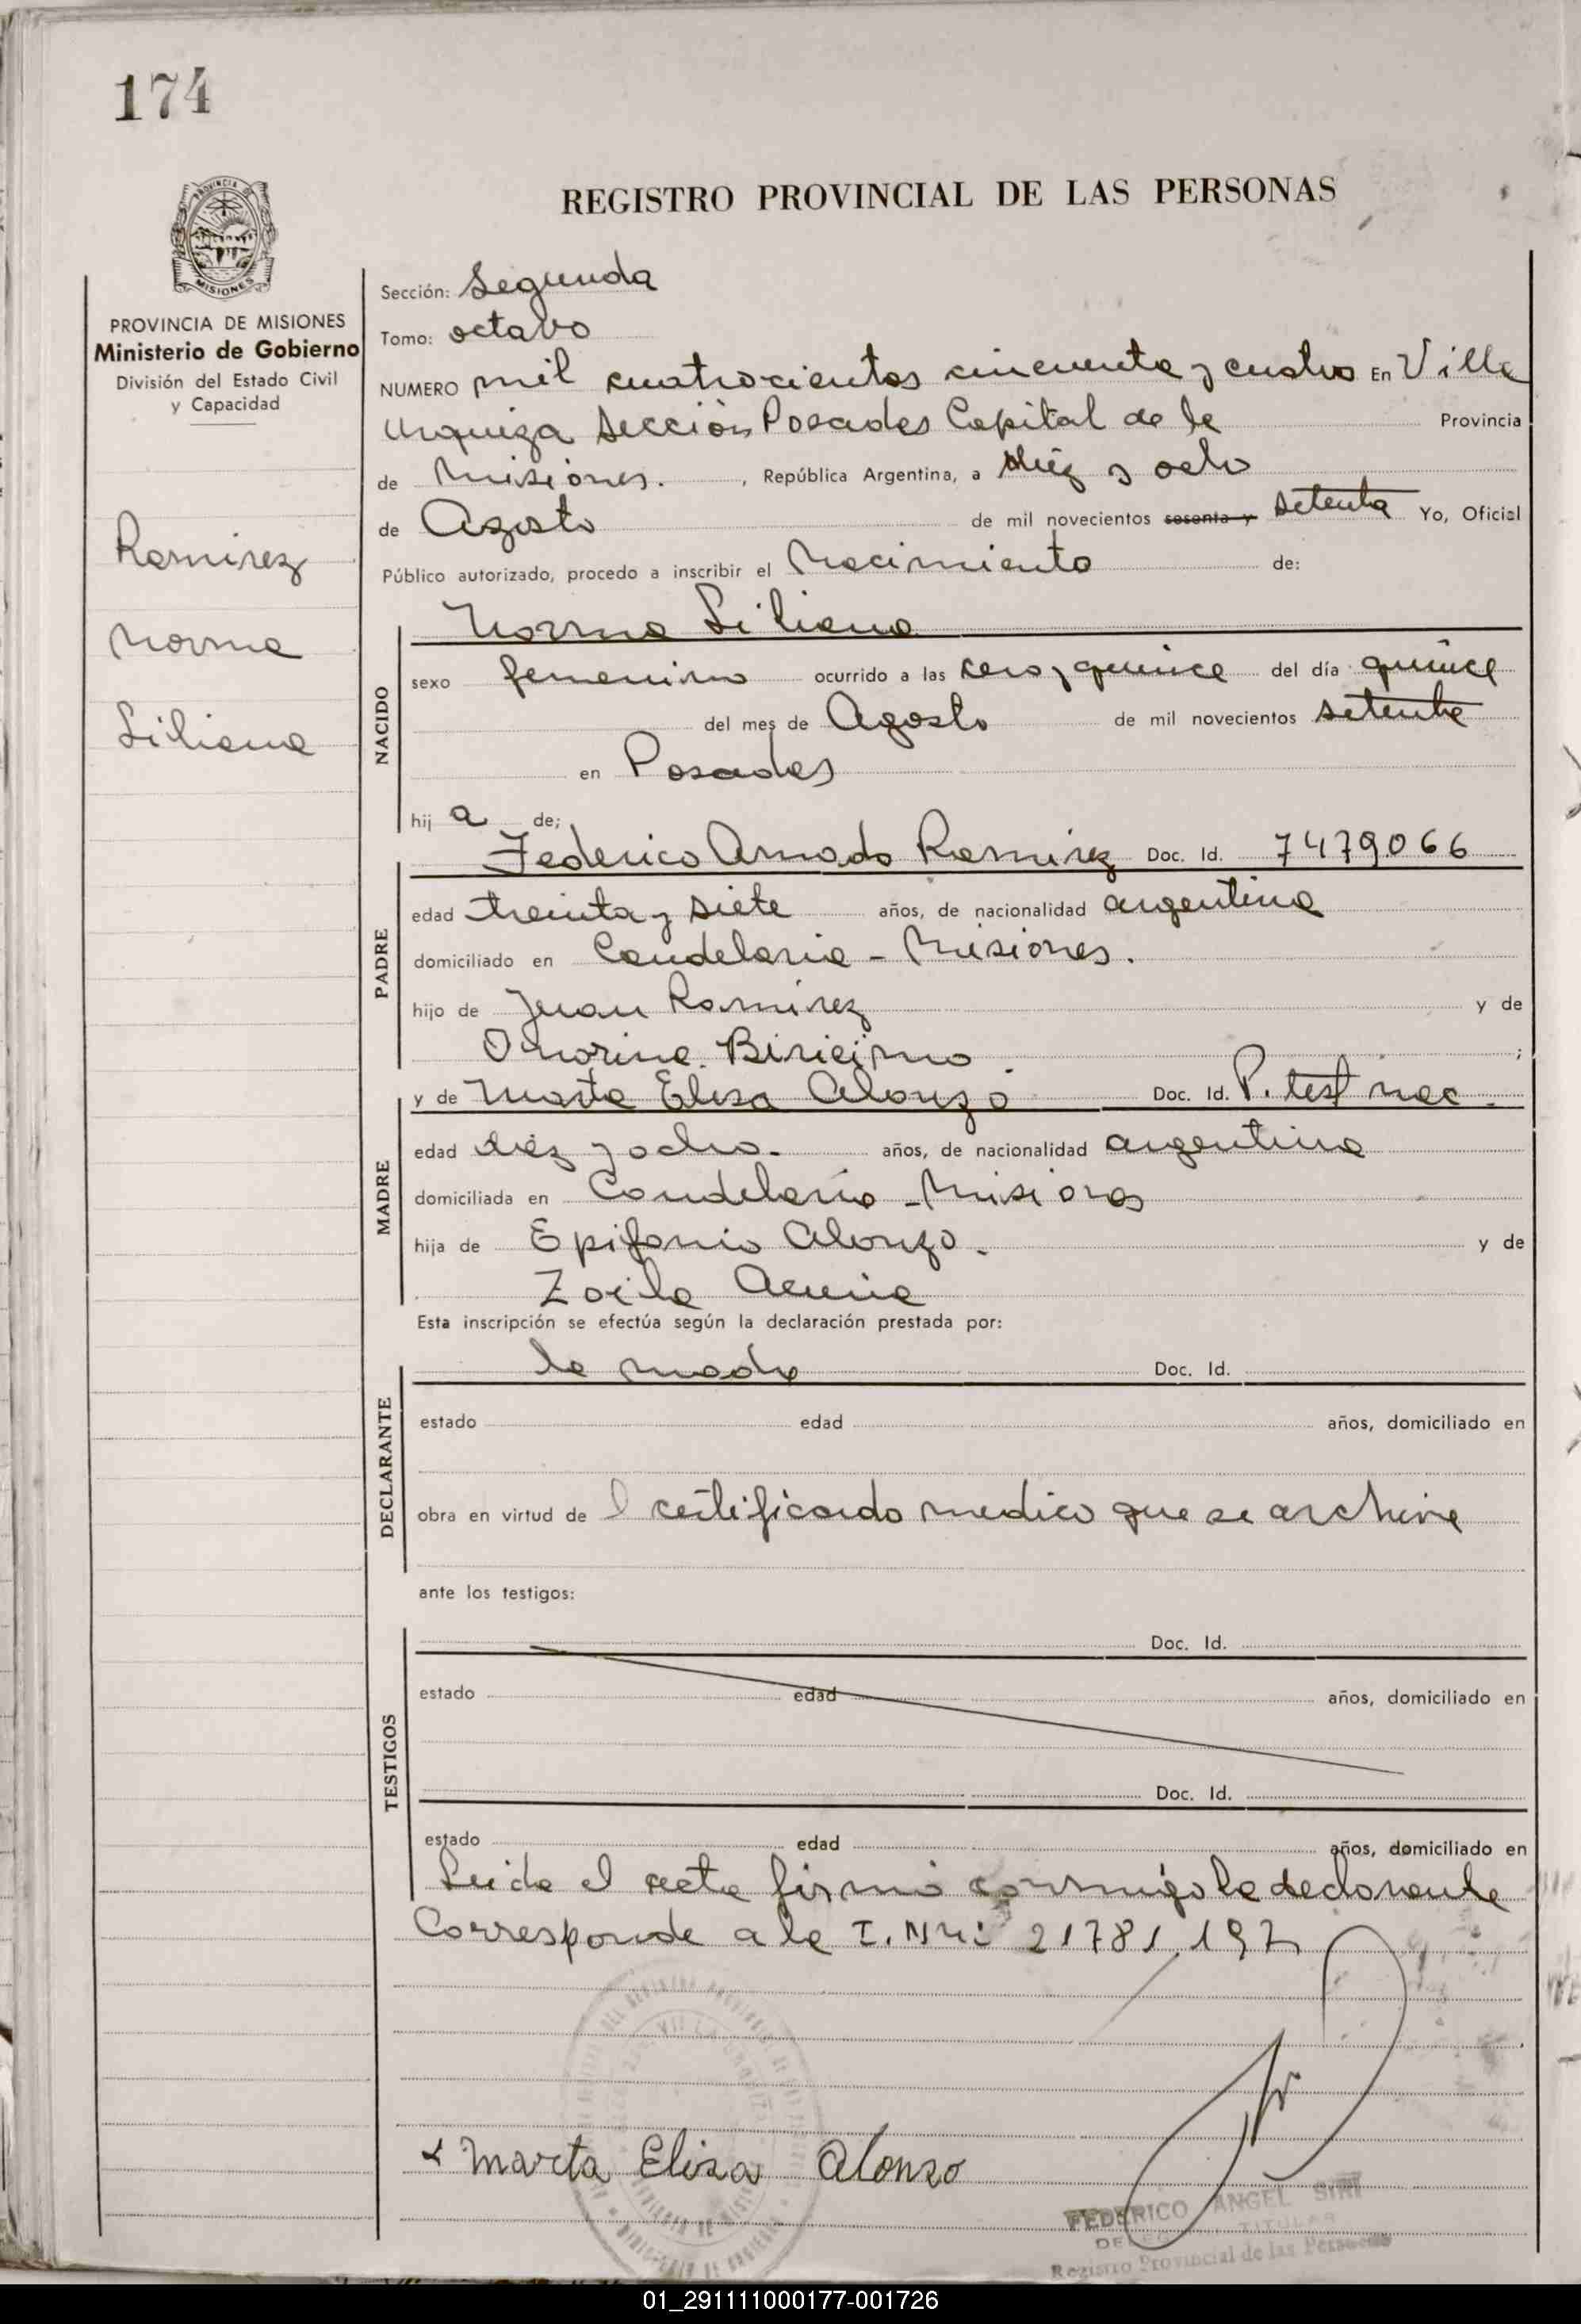 174
REGISTRO PROVINCIAL DE LAS PERSONAS
PROVINCIA DE MISIONES
Ministerio de Gobierno
División del Estado Civil
y Capacidad
Ramirez
Norma
Liliana
Sección: Segunda
Tomo: octavo
NUMERO mil cuatrocientos cincuenta y cuatro En Villa
Urquiza Sección Posadas Capital de la Provincia
de Misiones. , República Argentina, a diez y ocho
de Agosto de mil novecientos sesenta y setenta Yo, Oficial
Público autorizado, procedo a inscribir el Nacimiento de:
NACIDO
Norma Liliana
sexo femenino ocurrido a las cero y quince del día quince
del mes de Agosto de mil novecientos setenta
en Posadas
hij a de;
PADRE
Federico Amado Ramirez Doc. Id. 7479066
edad treinta y siete años, de nacionalidad argentina
domiciliado en Candelaria - Misiones.
hijo de Juan Ramirez y de
;
MADRE
y de Marta Elisa Alonzo Doc. Id. P. test nac.
edad diez y ocho. años, de nacionalidad argentina
domiciliada en Candelaria - Misiones
hija de Epifanio Alonzo. y de
Zoila Acuña
Esta inscripción se efectúa según la declaración prestada por:
DECLARANTE
la madre Doc. Id.
estado edad años, domiciliado en
obra en virtud de l certificado medico que se archiva
ante los testigos:
TESTIGOS
Doc. Id.
estado edad años, domiciliado en
Doc. Id.
estado edad años, domiciliado en
Leida el acta firmó conmigo la declarante
Corresponde a la
Marta Elisa Alonzo
FEDERICO ANGEL
TITULAR
Registro Provincial de las Personas
01_291111000177-001726